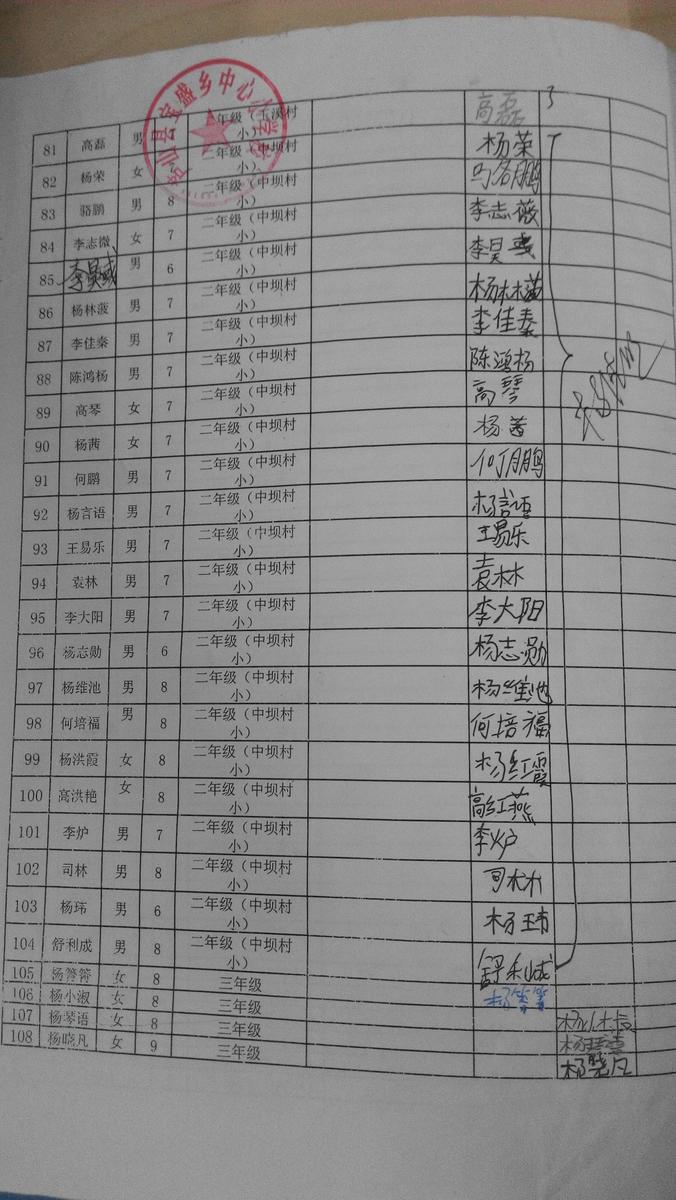 宝盛乡中心小学
81 高磊 男 二年级（玉溪村小） 高磊
82 杨荣 女 二年级（中坝村小） 杨荣
83 骆鹏 男 8 二年级（中坝村小）
84 李志微 女 7 二年级（中坝村小） 李志薇
85 男 6 二年级（中坝村小）
86 杨林菠 男 7 二年级（中坝村小）
87 李佳秦 男 7 二年级（中坝村小） 李佳秦
88 陈鸿杨 男 7 二年级（中坝村小） 陈鸿杨
89 高琴 女 7 二年级（中坝村小） 高琴
90 杨茜 女 7 二年级（中坝村小） 杨茜
91 何鹏 男 7 二年级（中坝村小） 何鹏
92 杨言语 男 7 二年级（中坝村小） 杨言语
93 王易乐 男 7 二年级（中坝村小） 王易乐
94 袁林 男 7 二年级（中坝村小） 袁林
95 李大阳 男 7 二年级（中坝村小） 李大阳
96 杨志勋 男 6 二年级（中坝村小） 杨志勋
97 杨维池 男 8 二年级（中坝村小） 杨维池
98 何培福 男 8 二年级（中坝村小） 何培福
99 杨洪霞 女 8 二年级（中坝村小） 杨红霞
100 高洪艳 女 8 二年级（中坝村小） 高红燕
101 李炉 男 7 二年级（中坝村小） 李炉
102 司林 男 8 二年级（中坝村小） 司林
103 杨玮 男 6 二年级（中坝村小） 杨玮
104 舒利成 男 8 二年级（中坝村小） 舒利成
105 女 8 三年级
106 杨小淑 女 8 三年级
107 杨琴语 女 8 三年级
108 杨晓凡 女 9 三年级 杨晓凡